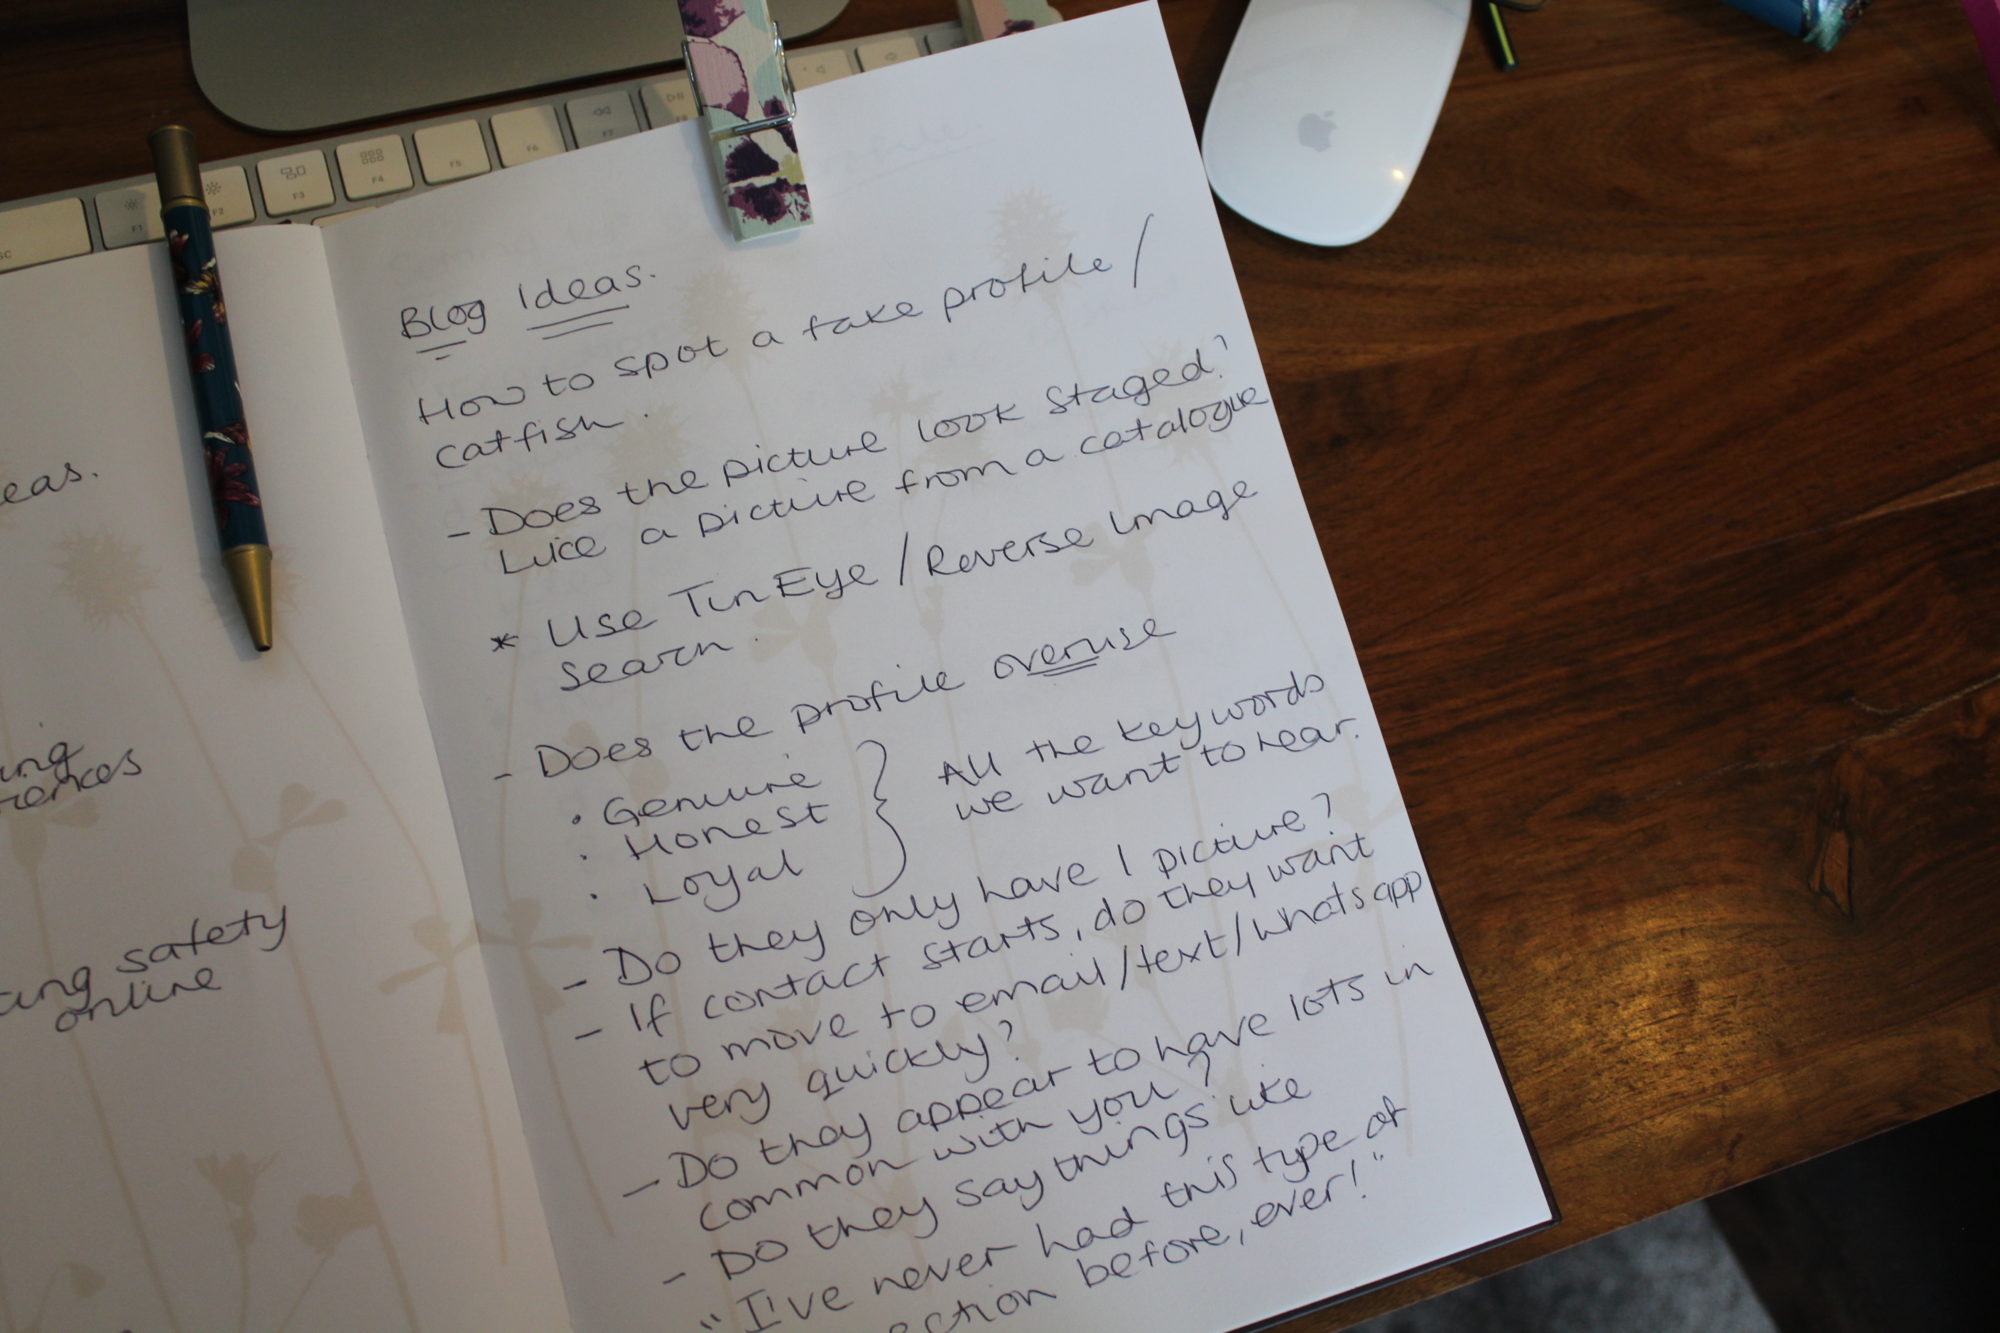 Blog Ideas.
How to spot a fake profile/
catfish.
- Does the picture look staged?
Like a picture from a catalogue
* Use TinEye/Reverse Image
Search.
- Does the profile overuse
• Genuine
• Honest
• Loyal
All the keywords
we want to hear.
- Do they only have 1 picture?
- If contact starts, do they want
to move to email/text/whatsapp
very quickly?
- Do they appear to have lots in
common with you?
- Do they say things like
"I've never had this type of
ection before, ever!"
eas.
ing
riences
ing safety
online
F1
F2
F3
F4
F5
F6
F7